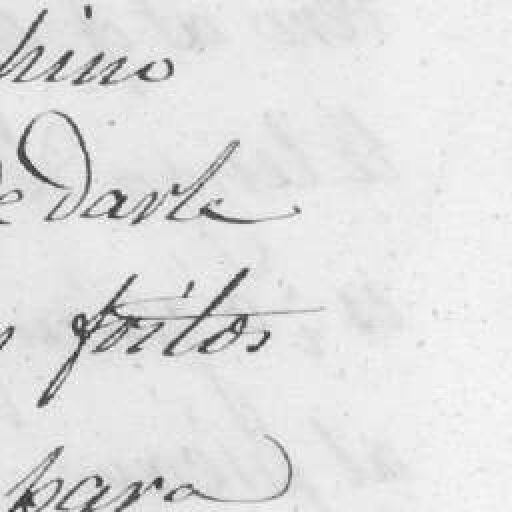 hino
de darle
foitos
para